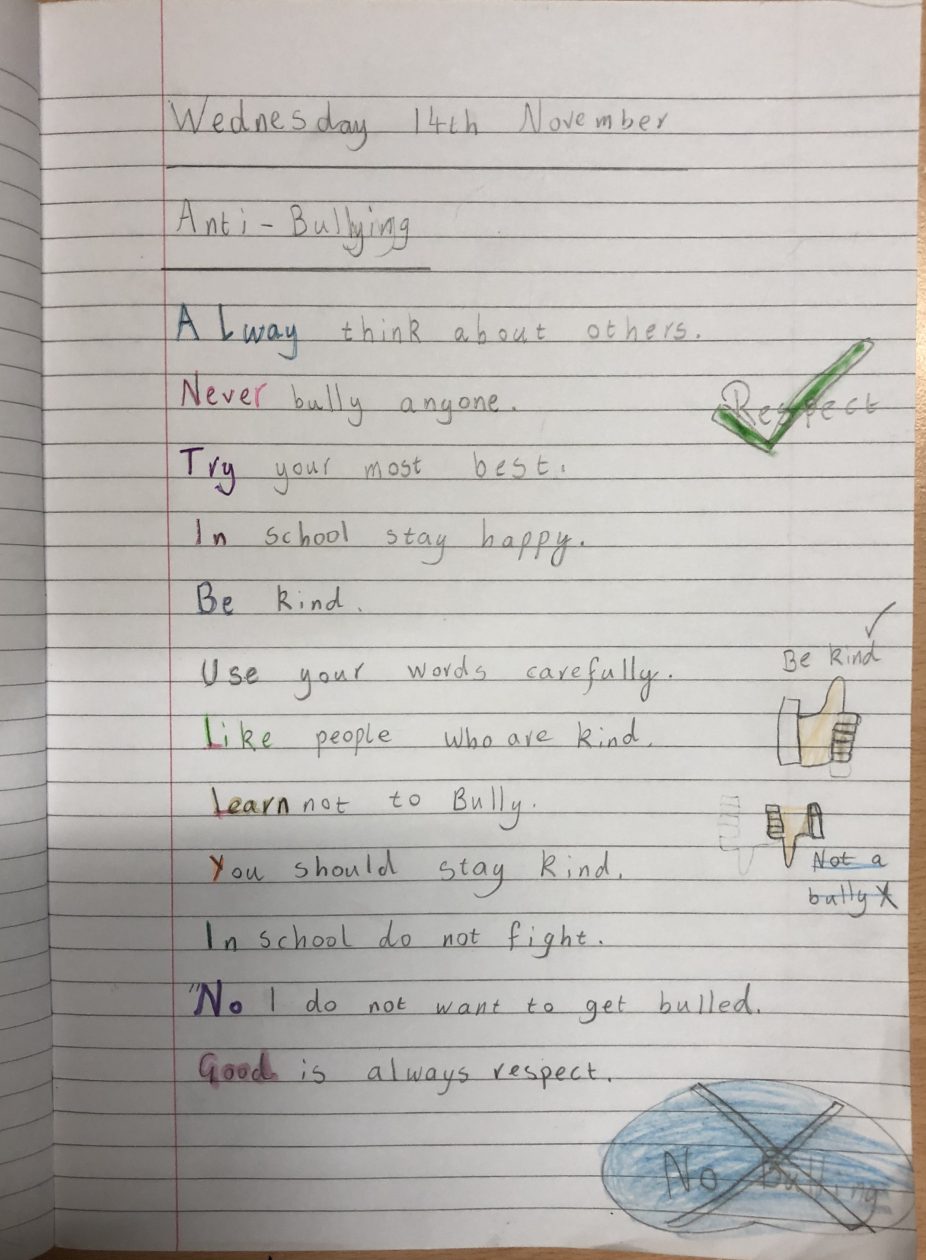 Wednesday 14th November
Anti - Bullying
ALway think about others.
Never bully anyone.
Respect
Try your most best.
In school stay happy.
Be kind.
Use your words carefully.
Be kind
Like people who are kind.
Learn not to Bully.
You should stay kind.
Not a
bully
In school do not fight.
"No I do not want to get bulled.
Good is always respect.
No Bulling